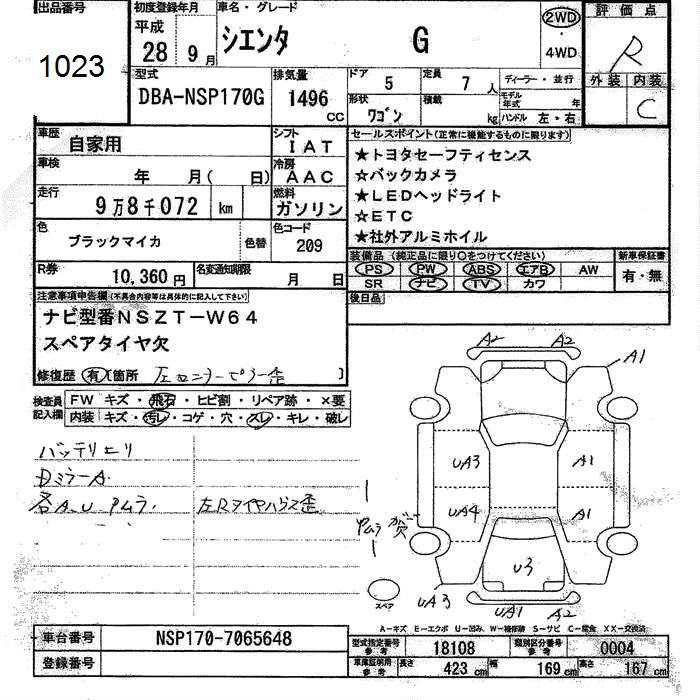 出品番号
1023
初度登録年月
平成
28 年 9 月
車名・グレード
シエンタ G
2WD
・
4WD
評価点
R
外装 内装
C
型式
DBA-NSP170G
排気量
1496 CC
ドア 5
定員 7 人
形状 ワゴン
積載 kg
ディーラー・並行
モデル年式 年
ハンドル 左・右
車歴 自家用
シフト IAT
車検 年 月( 日)
冷房 AAC
走行 9万8千072 km
燃料 ガソリン
色 ブラックマイカ 色替
色コード 209
R券 10,360 円
名変通知期限 月 日
セールスポイント(正常に機能するものに限ります)
★トヨタセーフティセンス
☆バックカメラ
★LEDヘッドライト
☆ETC
★社外アルミホイル
装備品 (純正品に限り○をつけてください)
PS PW ABS エアB AW
SR ナビ TV カワ
新車保証書
有・無
後日品
注意事項申告欄(不具合内容等は具体的に記入して下さい)
ナビ型番NSZT-W64
スペアタイヤ欠
修復歴 有 [箇所 左コーナーピラー歪 ]
検査員記入欄
FW キズ・飛石・ヒビ割・リペア跡・×要
内装 キズ・汚レ・コゲ・穴・スレ・キレ・破レ
バッテリエリ
DミラーA.
各A.U アムラ.
左Rタイヤハウス歪
A2 A2
A1
UA3 A1
UA4 A1
アムラ
U3
スペア
UA3
UA1 A2
A-キズ E-エクボ U-凹み W-補修跡 S-サビ C-腐食 XX-交換済
車台番号 NSP170-7065648
登録番号
型式指定番号 参考 18108
類別区分番号 参考 0004
車庫証明用 参考
長さ 423 cm
幅 169 cm
高さ 167 cm